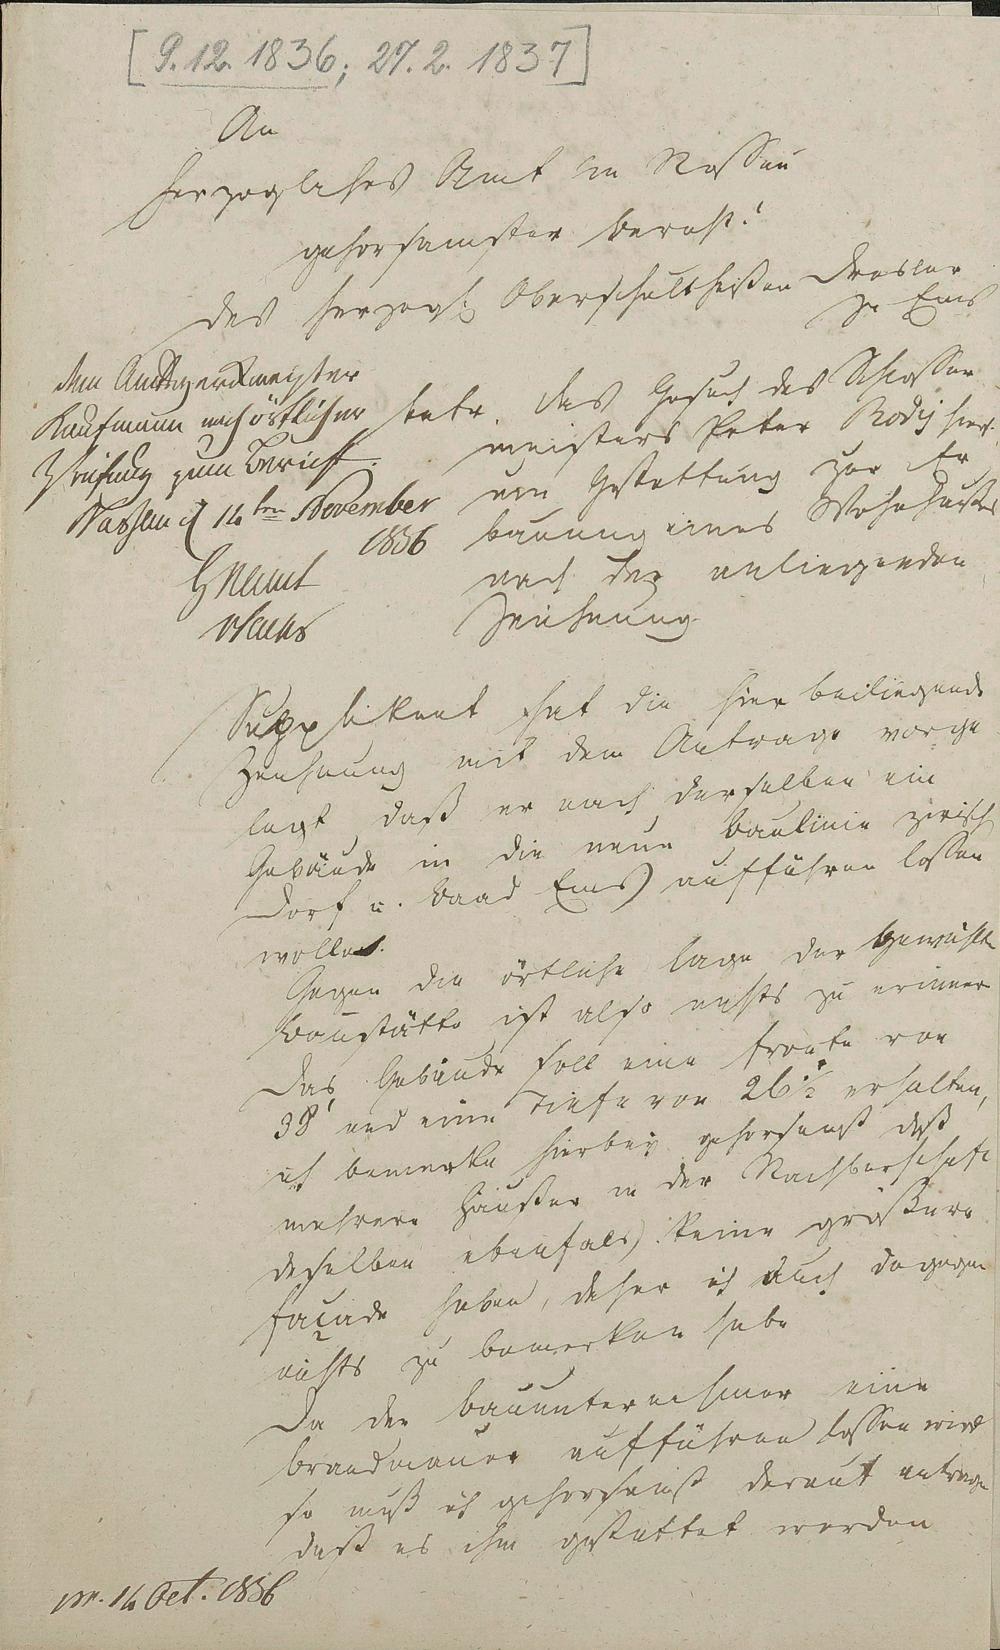 [9.12. 1836; 27. 2. 1837]
An
Herzogliches Amt in Nassau
gehorsamster Bericht
des Herzogl. Oberschultheißen Dresler
zu Ems
dem Amtswerkmeister
Kaufmann nach örtlicher
Prüfung zum Bericht.
Nassau d 14ten November
1836
H N Amt
betr. das Gesuch des Schlosser
meisters Peter Rody hier
um Gestattung zur Er
bauung eines Wohnhauses
nach der anliegenden
Zeichnung
Supplikant hat die hier beiliegende
Zeichnung mit dem Antrage vorge
legt, daß er nach derselben ein
Gebäude in die neue Baulinie zwisch
Dorf u. Baad Ems aufführen lassen
wolle.
Gegen die örtliche Lage der gewählte
Baustätte ist also nichts zu erinner
Das Gebäude soll eine Fronte von
38' und eine Tiefe von 26½' erhalten,
ich bemerke hierbey gehorsamst daß
mehrere Häußer in der Nachbarschaft
deselben ebenfals keine größere
façade haben, daher ich auch dagegen
nichts zu bemerken habe
Da der Bauunternehmer eine
Brandmauer aufführen lassen wird
so muß ich gehorsamst darauf antragen
daß es ihm gestattet werden
pr. 14 Oct. 1836